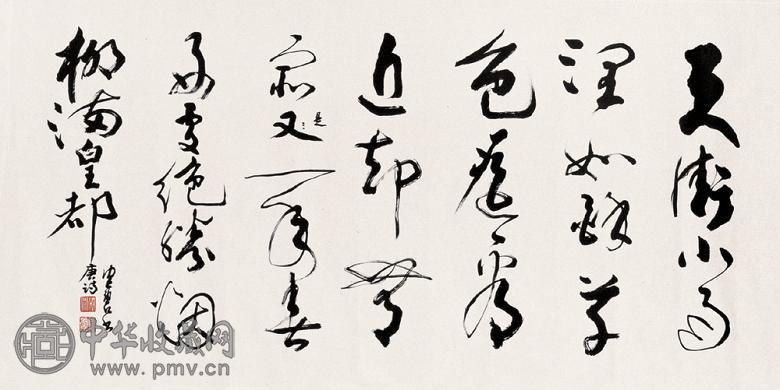 天街小雨
潤如酥草
色遥看
近却無
最是一年春
好處絕勝烟
柳滿皇都
唐詩
中华收藏网
www.pmv.cn